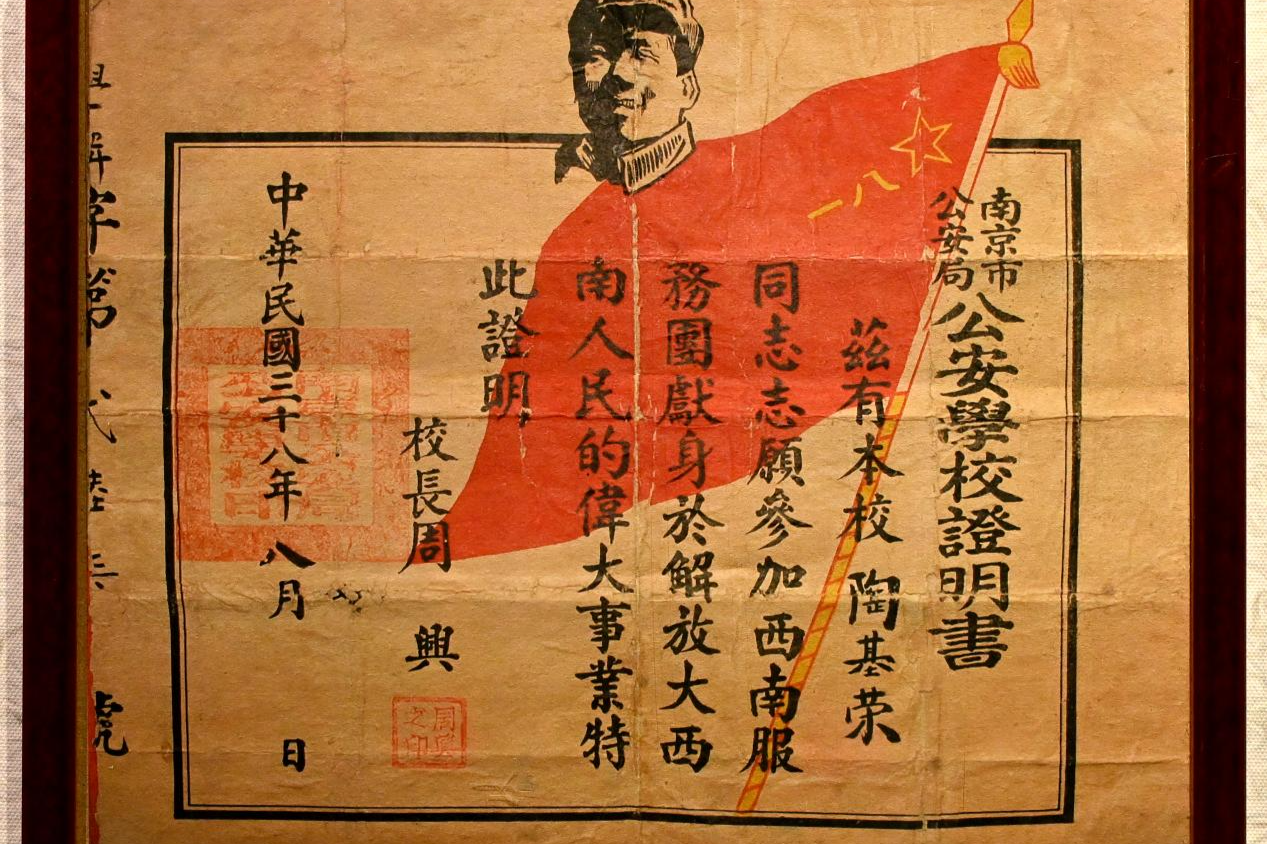 南京市
公安局
公安學校證明書
茲有本校 陶基荣
同志志願參加西南服
務團獻身於解放大西
南人民的偉大事業特
此證明
校長周 興
周興
之印
中華民國三十八年 八月 日
八一
字第 號